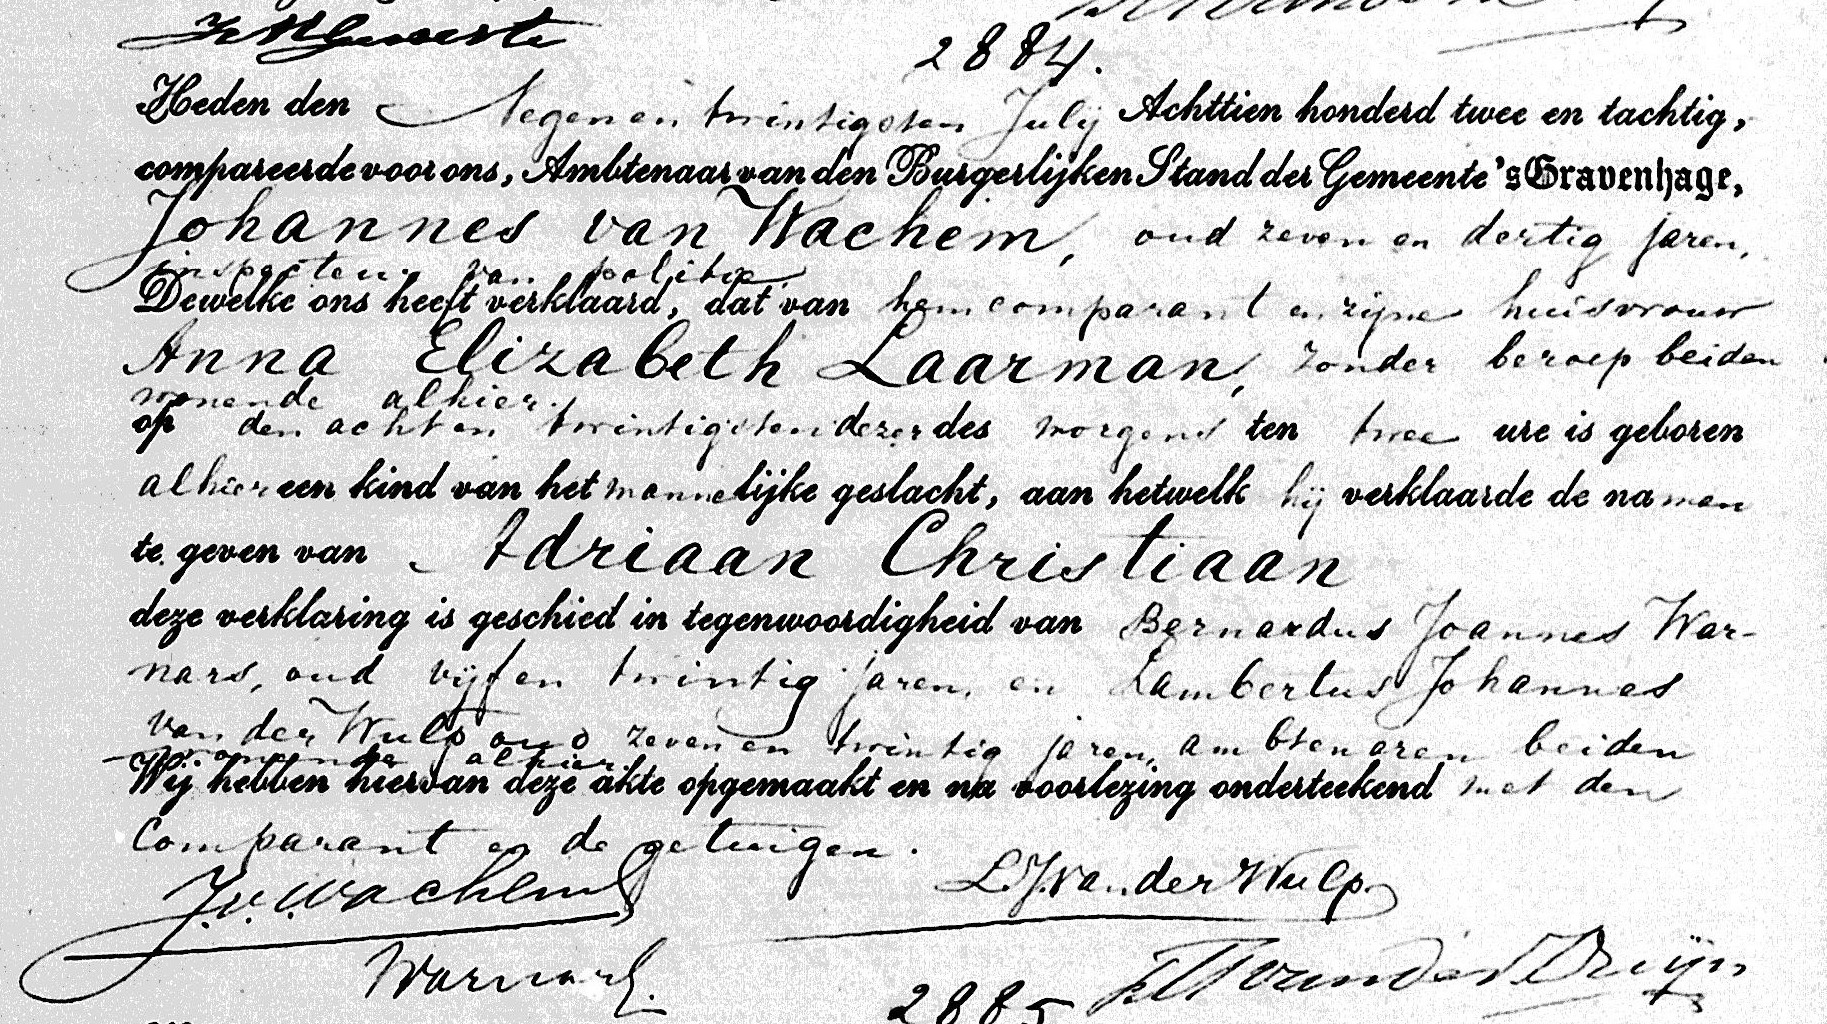 2884.
Heden den Negen en twintigsten July Achttien honderd twee en tachtig,
compareerde voor ons, Ambtenaar van den Burgerlijken Stand der Gemeente 's Gravenhage,
Johannes van Wachem, oud zeven en dertig jaren,
inspecteur van politie
Dewelke ons heeft verklaard, dat van hem comparant en zijne huisvrouw
Anna Elizabeth Laarman, zonder beroep beiden
wonende alhier.
op den acht en twintigsten dezer des morgens ten twee ure is geboren
alhier een kind van het mannelijke geslacht, aan hetwelk hij verklaarde de namen
te geven van Adriaan Christiaan
deze verklaring is geschied in tegenwoordigheid van Bernardus Joannes War-
nars, oud vijf en twintig jaren, en Lambertus Johannes
van der Wulp oud zeven en twintig jaren, ambtenaren beiden
wonende alhier.
Wij hebben hiervan deze akte opgemaakt en na voorlezing onderteekend met den
Comparant en de getuigen.
J. v. Wachem L.J. van der Wulp
Warnars.
2885